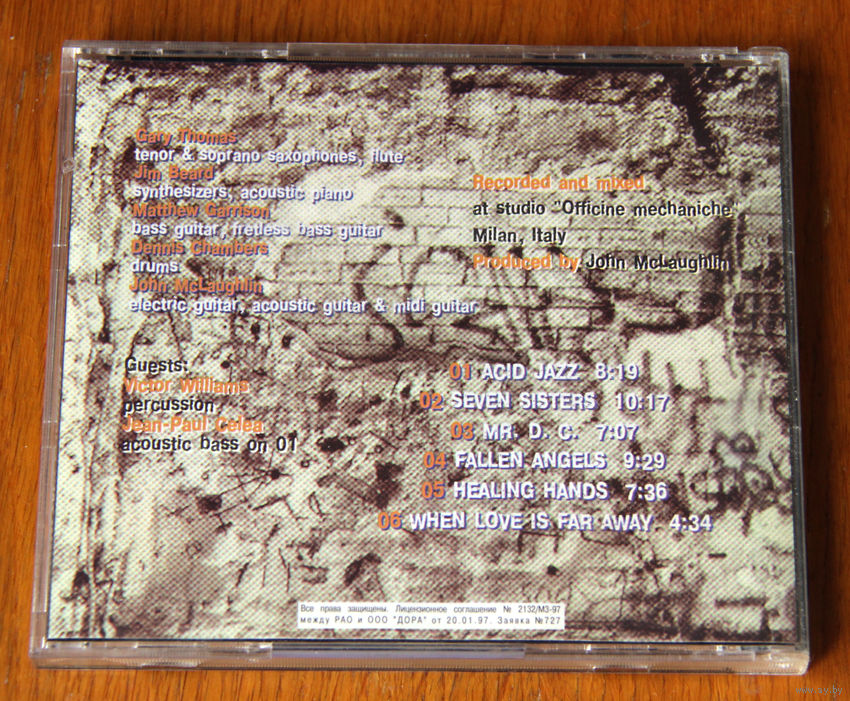 Gary Thomas
tenor & soprano saxophones, flute
Jim Beard
synthesizers, acoustic piano
Matthew Garrison
bass guitar, fretless bass guitar
Dennis Chambers
drums
John McLaughlin
electric guitar, acoustic guitar & midi guitar
Guests:
Victor Williams
percussion
Jean-Paul Celea
acoustic bass on 01
Recorded and mixed
at studio "Officine mechaniche"
Milan, Italy
Produced by John McLaughlin
01 ACID JAZZ 8:19
02 SEVEN SISTERS 10:17
03 MR. D. C. 7:07
04 FALLEN ANGELS 9:29
05 HEALING HANDS 7:36
06 WHEN LOVE IS FAR AWAY 4:34
Все права защищены. Лицензионное соглашение № 2132/МЗ-97
между РАО и ООО "ДОРА" от 20.01.97. Заявка №727
www.ay.by